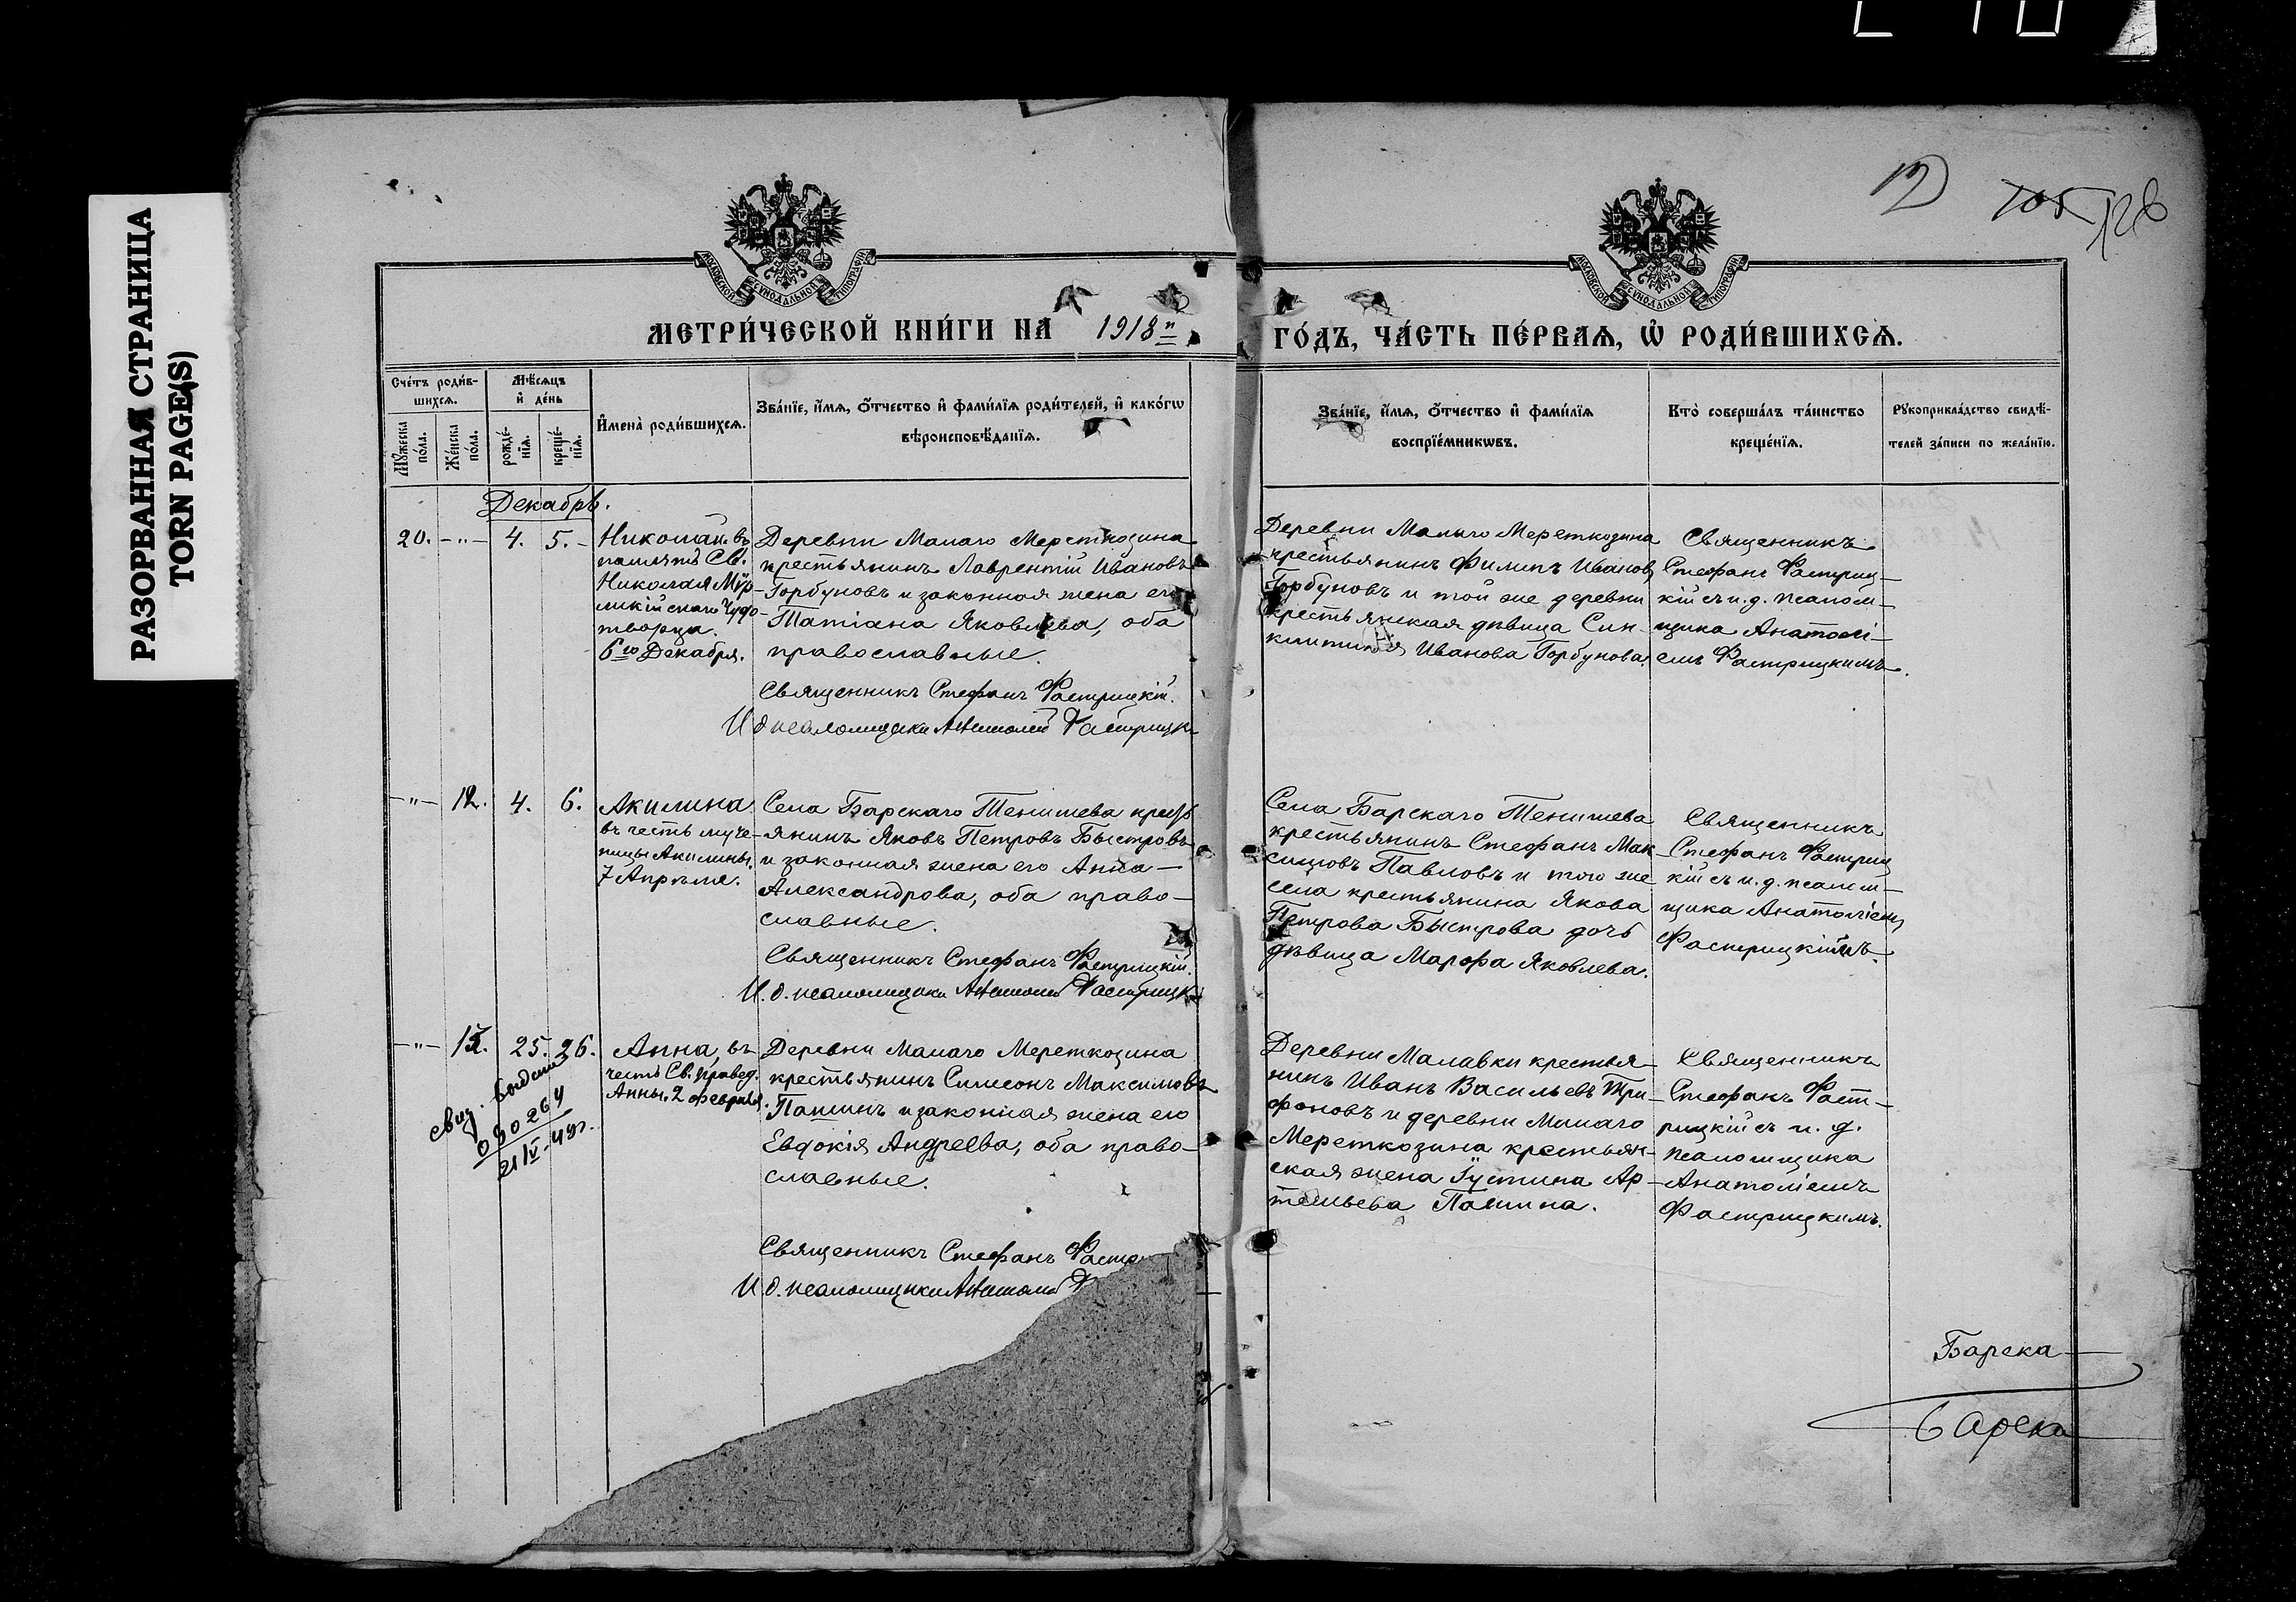 РАЗОРВАННАЯ СТРАНИЦА
TORN PAGE(S)
12
105
128
МОСКОВСКОЙ СѴНОДАЛЬНОЙ ТИПОГРАФІИ
МОСКОВСКОЙ СѴНОДАЛЬНОЙ ТИПОГРАФІИ
МЕТРИ́ЧЕСКОЙ КНИ́ГИ НА 1918й
ГО́ДЪ, ЧА́СТЬ ПЕ́РВАѦ, Ѡ РОДИ́ВШИХСѦ.
Сче́тъ роди́в-
шихсѧ.
Мꙋжеска по́ла.
Же́нска по́ла.
Мѣ́сѧцъ
и҆ де́нь
рожде́-
нїѧ.
креще́-
нїѧ.
И҆мена̀ роди́вшихсѧ.
Зва́нїе, и҆́мѧ, ѻ҆́тчество и҆ фами́лїѧ роди́телей, и҆ како́гѡ
вѣроисповѣ́данїѧ.
Зва́нїе, и҆́мѧ, ѻ҆́тчество и҆ фами́лїѧ
воспрїе́мникѡвъ.
Кто̀ соверша́лъ та́инство
креще́нїѧ.
Рꙋкоприкла́дство свидѣ́-
телей за́писи по жела́нїю.
Декабрь.
20. -"- 4. 5.
Николай въ
память Св.
Николая Мѵр-
ликійскаго Чудо-
творца.
6го Декабря.
Деревни Малаго Мереткозина
крестьянинъ Лаврентій Ивановъ
Горбуновъ и законная жена его
Татіана Яковлева, оба
православные.
Священникъ Стефанъ Фастрицкій.
И д псаломщика Анатолій Фастрицк
Деревни Малаго Мереткозина
крестьянинъ Филипъ Иванов
Горбуновъ и той же деревни
крестьянская дѣвица Син-
клитикія Иванова Горбунова.
Священникъ
Стефанъ Фастриц-
кій съ и. д. псалом-
щика Анатолі-
емъ Фастрицкимъ.
-"- 12. 4. 6.
Акилина
въ честь муче-
ницы Акилины.
7 Апрѣля.
Села Барскаго Тенишева кресть
янинъ Яковъ Петровъ Быстровъ
и законная жена его Анна
Александрова, оба право-
славные.
Священникъ Стефанъ Фастрицкій.
И. д. псаломщика Анатолій Фастрицк
Села Барскаго Тенишева
крестьянинъ Стефанъ Мак-
симовъ Павловъ и того же
села крестьянина Якова
Петрова Быстрова дочь
дѣвица Марфа Яковлева.
Священникъ
Стефанъ Фастриц
кій съ и. д. псалом-
щика Анатоліемъ
Фастрицкимъ.
-"- 13. 25. 26.
свид. выдано
090264
21/IV-49г.
Анна, въ
честь Св. правед.
Анны. 2 февраля.
Деревни Малаго Мереткозина
крестьянинъ Симеонъ Максимовъ
Пашинъ и законная жена его
Евдокія Андреева, оба право-
славные.
Священникъ Стефанъ Фастр
И д. псаломщика Анатолій Ф
Деревни Малавки крестья-
нинъ Иванъ Васильевъ Три-
фоновъ и деревни Малаго
Мереткозина крестьян-
ская жена Іустина Ар-
темьева Пашина.
Священникъ
Стефанъ Фаст-
рицкій съ и. д.
псаломщика
Анатоліемъ
Фастрицкимъ.